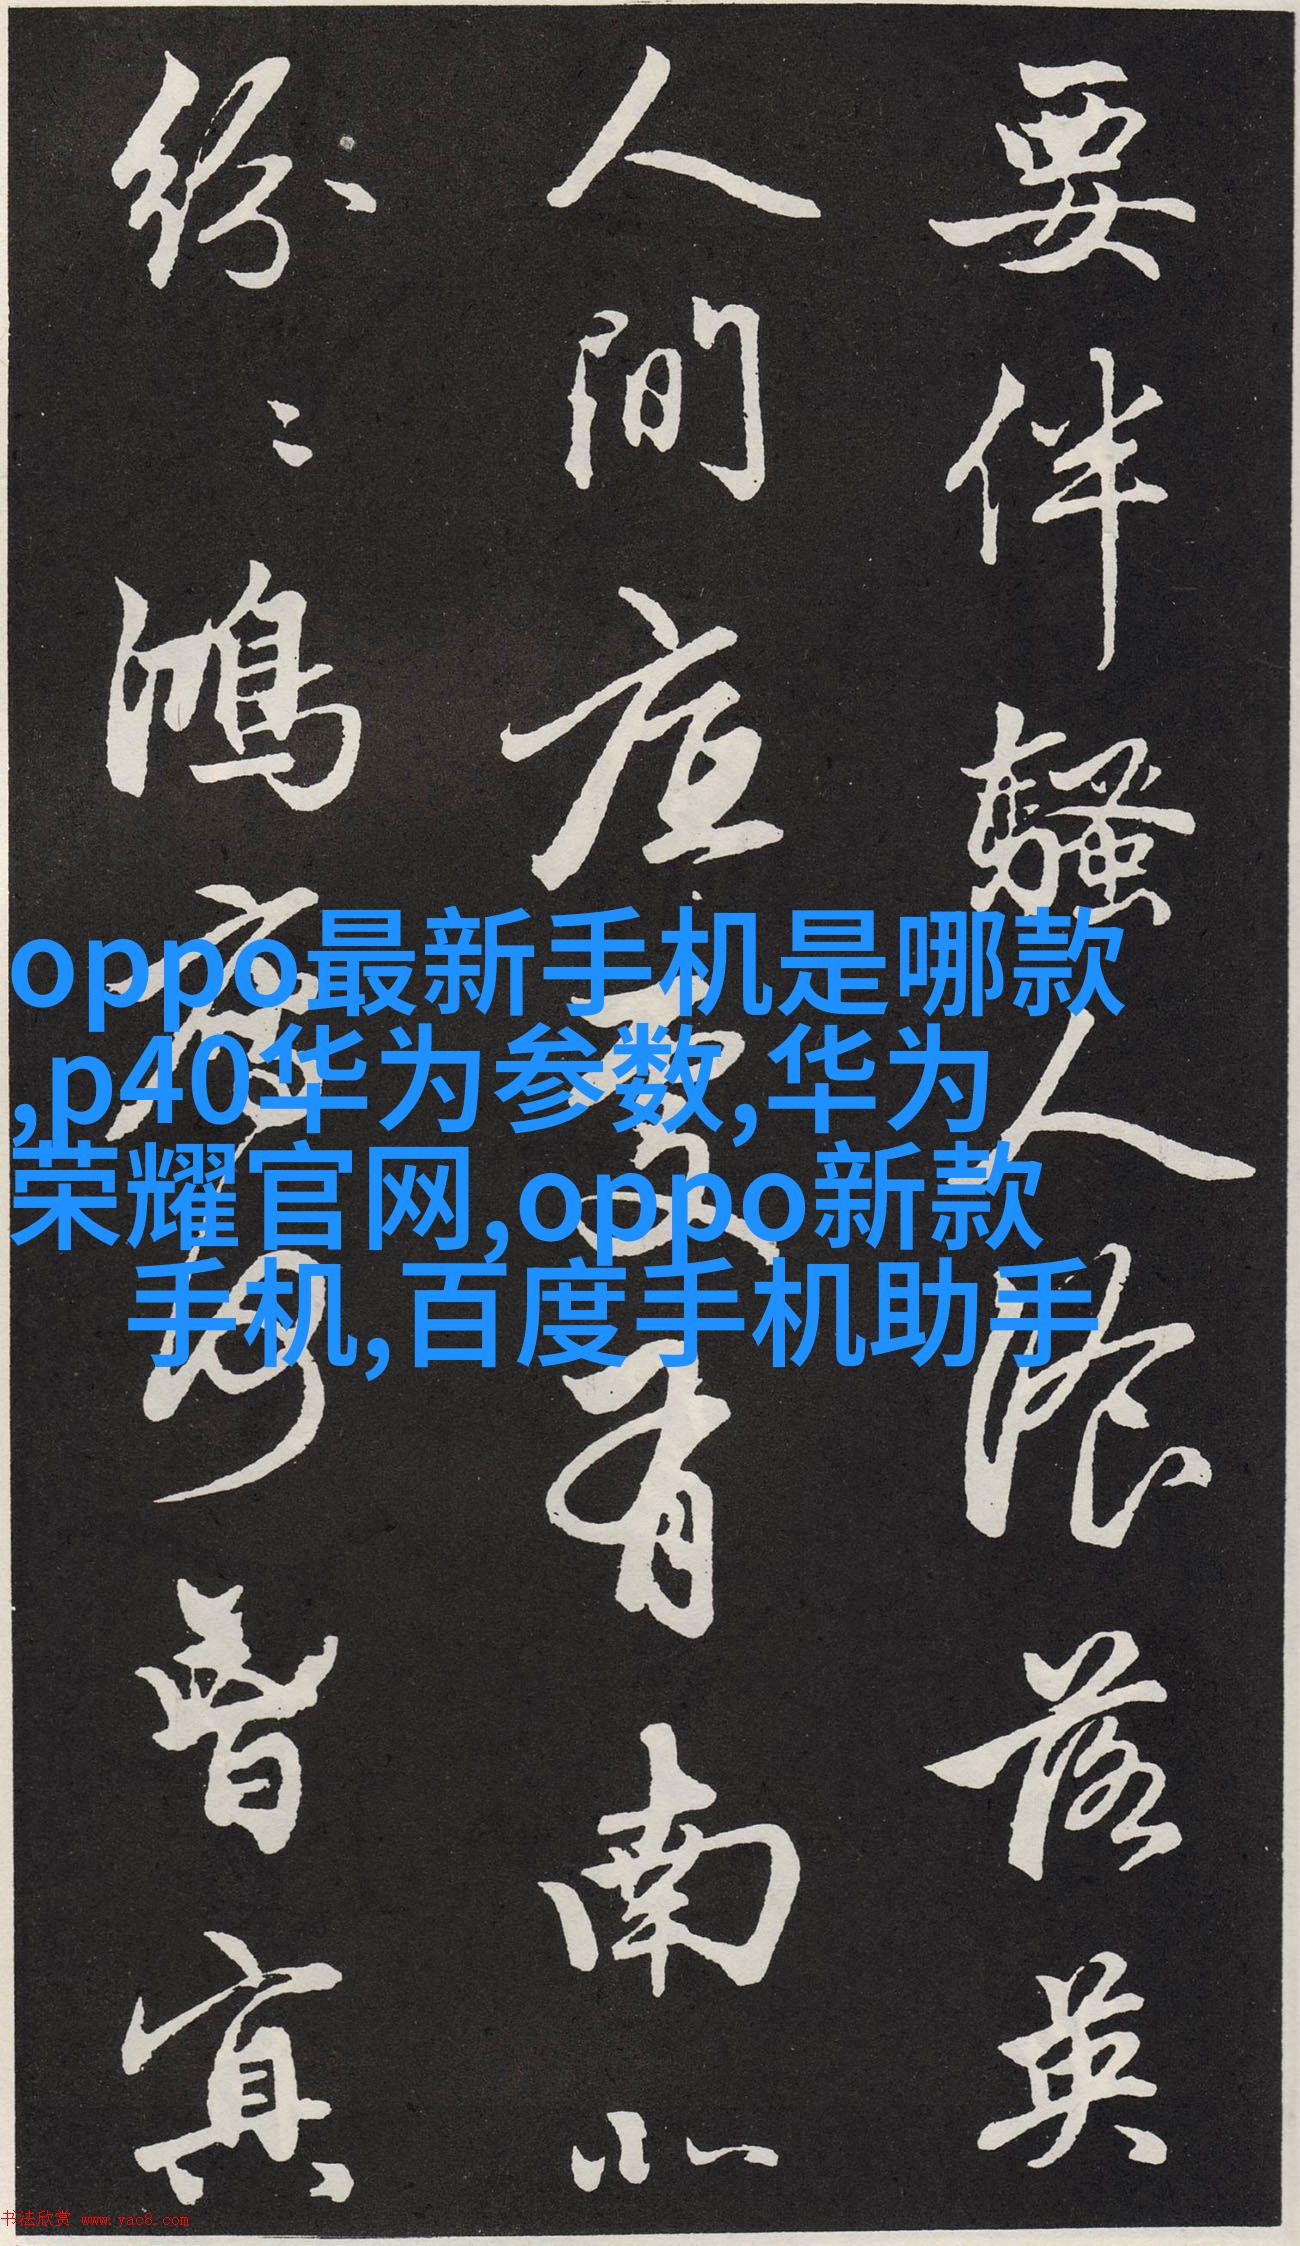 要伴騷人餐落英
人間底處有南北
紛〻鴻雁何曾冥
oppo最新手机是哪款
,p40华为参数,华为
荣耀官网,oppo新款
手机,百度手机助手
书法欣赏 www.yac8.com